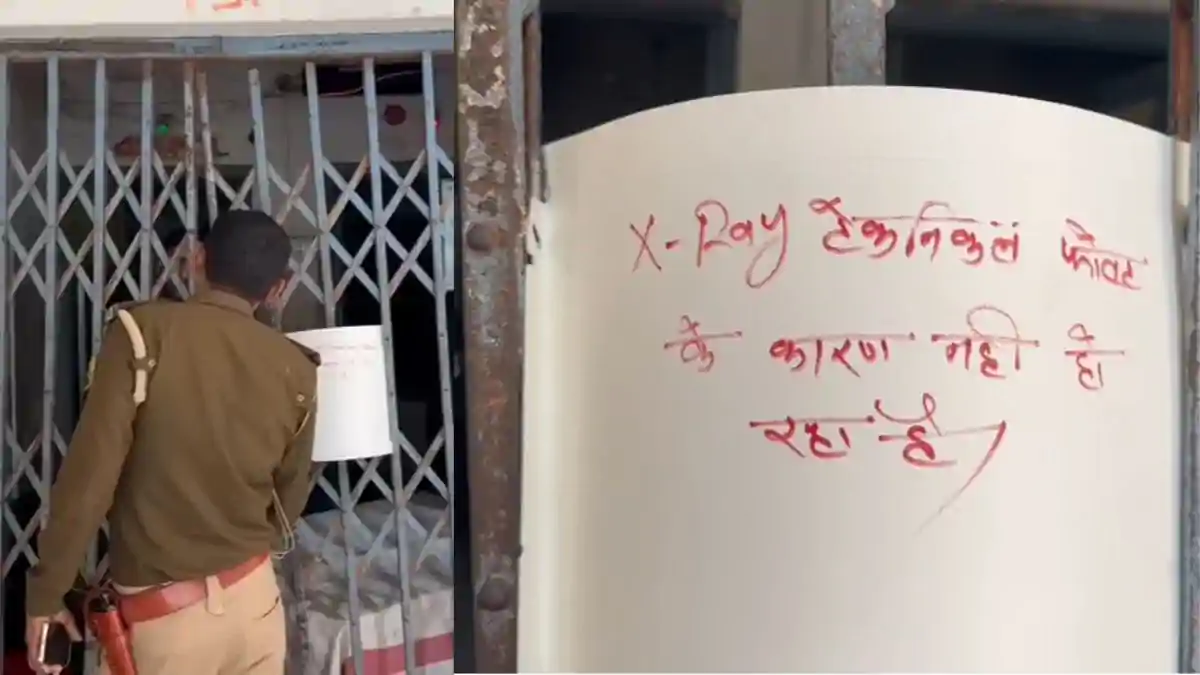 X-Ray टेकनिकल फोल्ट
के कारण नही हो
रहा है/